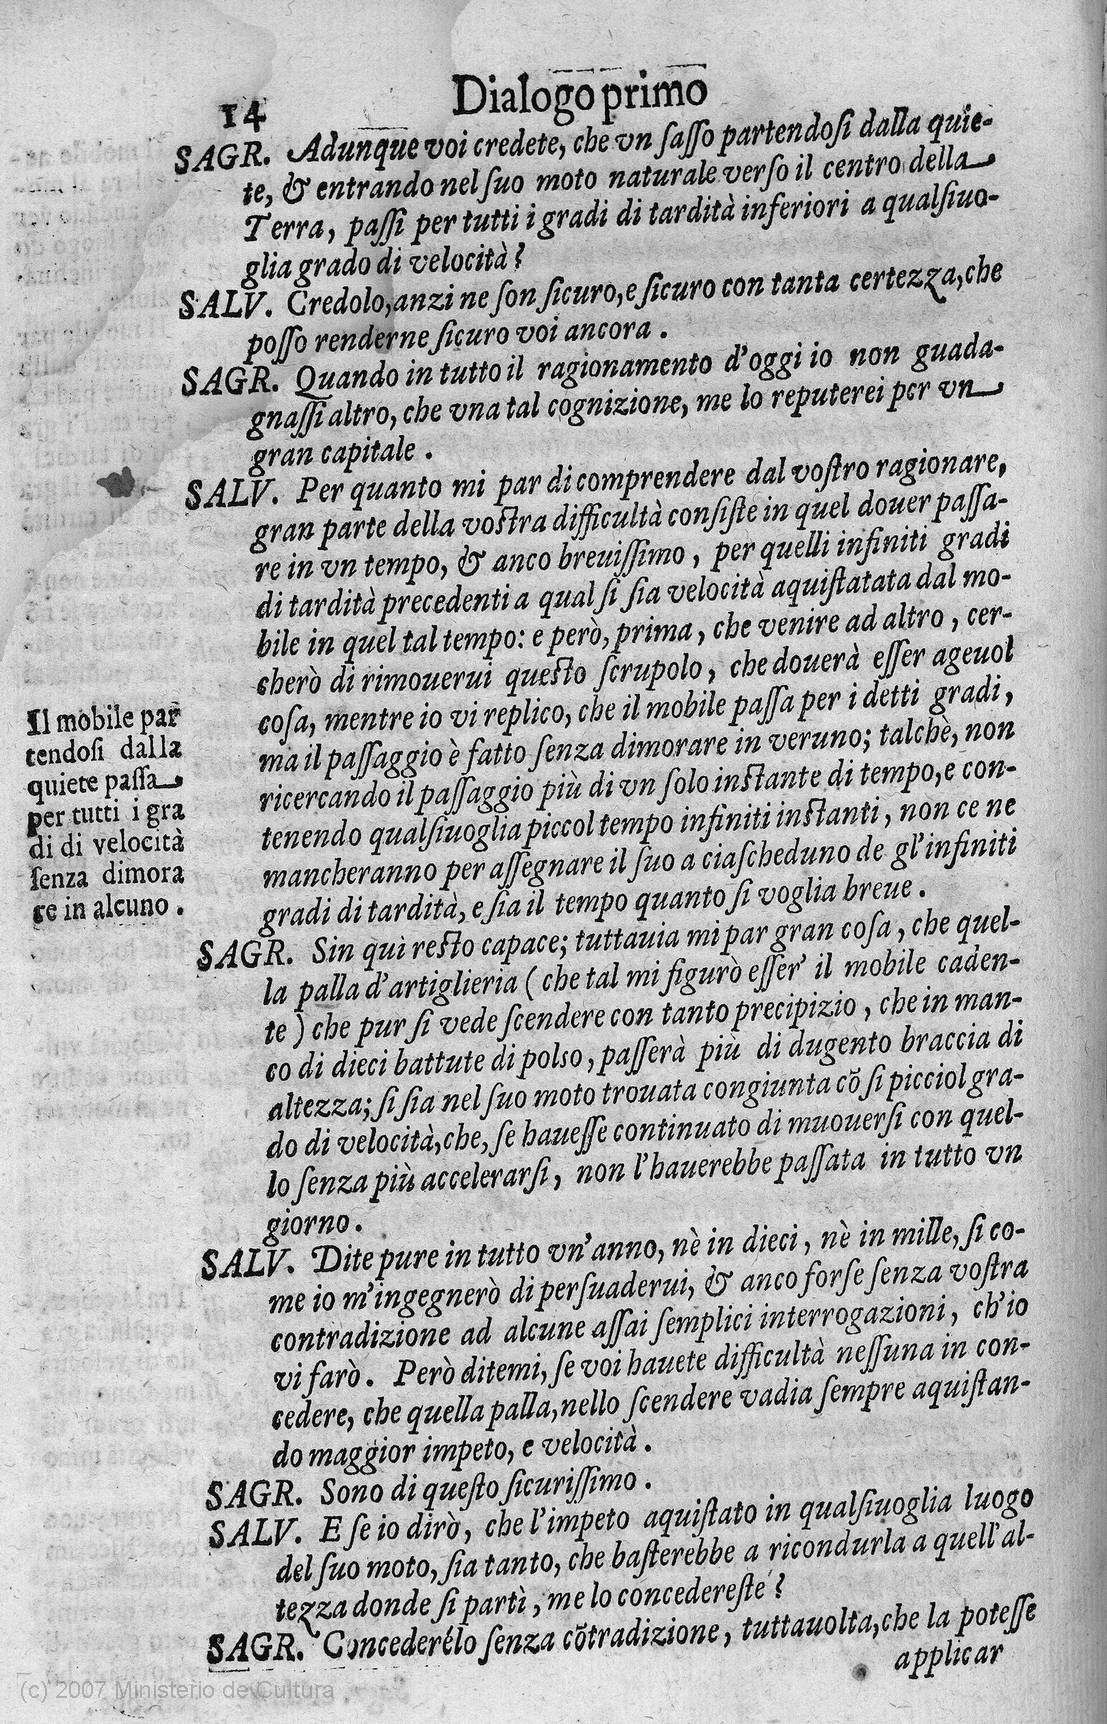 14
Dialogo primo
SAGR. Adunque voi credete, che vn ſaſſo partendoſi dalla quie-
te, & entrando nel ſuo moto naturale verſo il centro della
Terra, paſſi per tutti i gradi di tardità inferiori a qualſiuo-
glia grado di velocità?
SALV. Credolo, anzi ne ſon ſicuro, e ſicuro con tanta certezza, che
poſſo renderne ſicuro voi ancora.
SAGR. Quando in tutto il ragionamento d'oggi io non guada-
gnaſſi altro, che vna tal cognizione, me lo reputerei per vn
gran capitale.
SALV. Per quanto mi par di comprendere dal voſtro ragionare,
gran parte della voſtra difficultà conſiſte in quel douer paſſa-
re in vn tempo, & anco breuiſſimo, per quelli infiniti gradi
di tardità precedenti a qual ſi ſia velocità aquiſtatata dal mo-
bile in quel tal tempo: e però, prima, che venire ad altro, cer-
cherò di rimouerui queſto ſcrupolo, che douerà eſſer ageuol
coſa, mentre io vi replico, che il mobile paſſa per i detti gradi,
ma il paſſaggio è fatto ſenza dimorare in veruno; talchè, non
ricercando il paſſaggio più di vn ſolo inſtante di tempo, e con-
tenendo qualſiuoglia piccol tempo infiniti inſtanti, non ce ne
mancheranno per aſſegnare il ſuo a ciaſcheduno de gl'infiniti
gradi di tardità, e ſia il tempo quanto ſi voglia breue.
Il mobile par
tendoſi dalla
quiete paſſa
per tutti i gra
di di velocità
ſenza dimora
re in alcuno.
SAGR. Sin quì reſto capace; tuttauia mi par gran coſa, che quel-
la palla d'artiglieria (che tal mi figurò eſſer' il mobile caden-
te) che pur ſi vede ſcendere con tanto precipizio, che in man-
co di dieci battute di polso, paſſerà più di dugento braccia di
altezza; ſi ſia nel ſuo moto trouata congiunta cō ſi picciol gra-
do di velocità, che, ſe haueſſe continuato di muouerſi con quel-
lo ſenza più accelerarſi, non l'hauerebbe paſſata in tutto vn
giorno.
SALV. Dite pure in tutto vn'anno, nè in dieci, nè in mille, ſi co-
me io m'ingegnerò di perſuaderui, & anco forſe ſenza voſtra
contradizione ad alcune aſſai ſemplici interrogazioni, ch'io
vi farò. Però ditemi, ſe voi hauete difficultà neſſuna in con-
cedere, che quella palla, nello ſcendere vadia ſempre aquiſtan-
do maggior impeto, e velocità.
SAGR. Sono di queſto ſicuriſſimo.
SALV. E ſe io dirò, che l'impeto aquiſtato in qualſiuoglia luogo
del ſuo moto, ſia tanto, che baſterebbe a ricondurla a quell'al-
tezza donde ſi partì, me lo concedereſte?
SAGR. Concederélo ſenza cōtradizione, tuttauolta, che la poteſſe
applicar
(c) 2007 Ministerio de Cultura